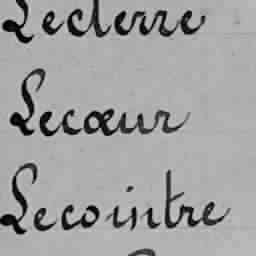 Leclerre
Lecœur
Lecointre